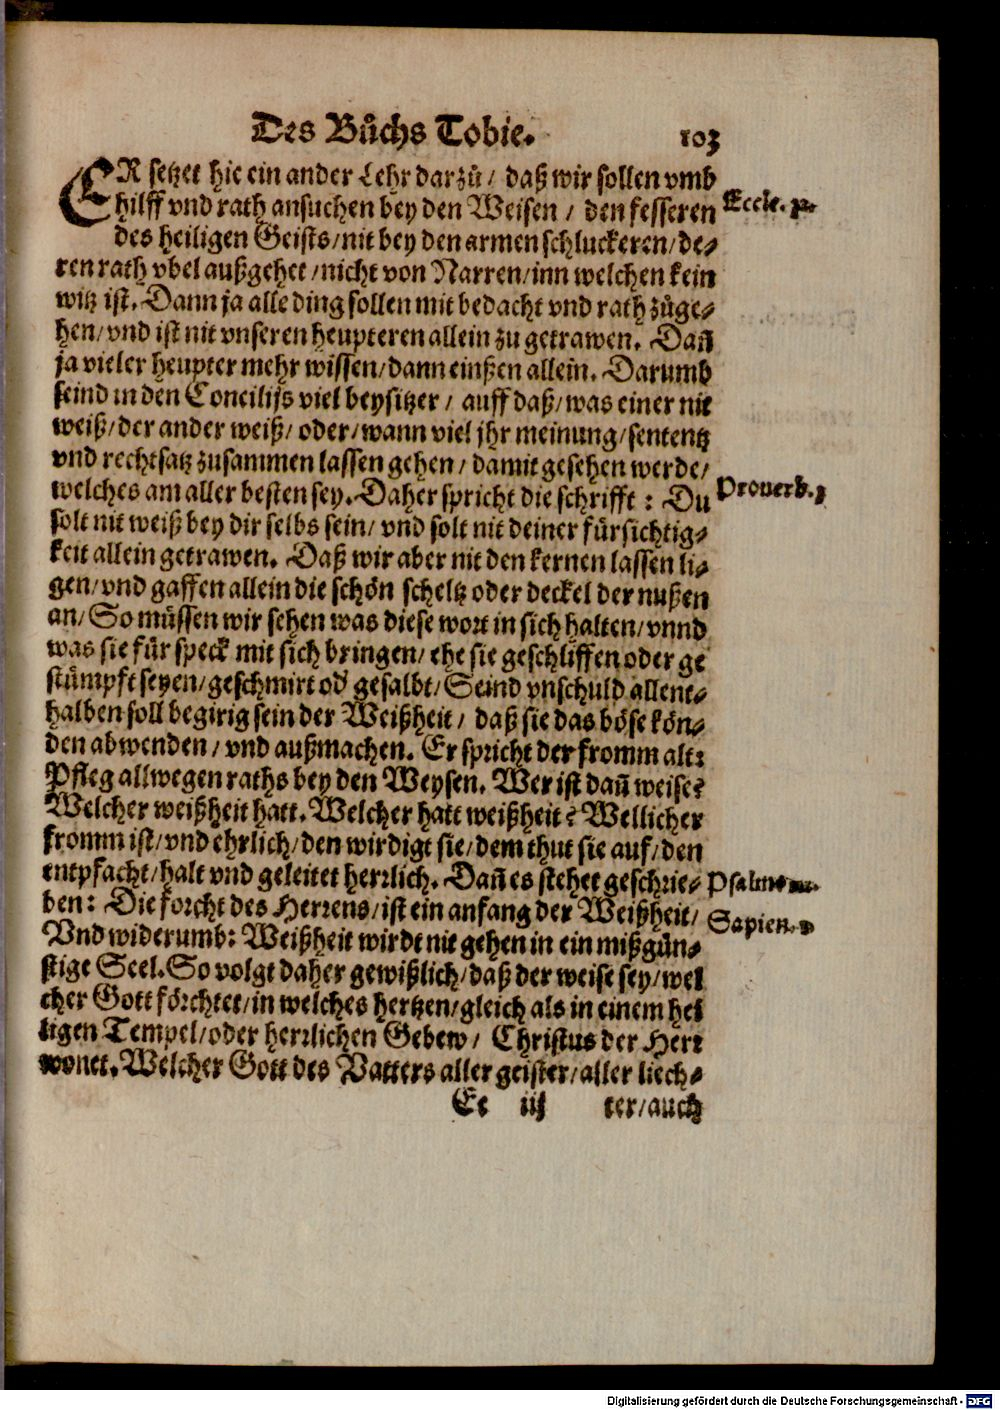 Des Bůchs Tobie. 103
ER setzet hie ein ander Lehr darzů / daß wir sollen vmb
hilff vnd rath ansuchen bey den Weisen / den fesseren
des heiligen Geists/nit bey den armen schluckeren/de-
ren rath vbel außgehet/nicht von Narren/inn welchen kein
witz ist. Dann ja alle ding sollen mit bedacht vnd rath zůge-
hen/vnd ist nit vnseren heupteren allein zu getrawen. Dañ
ja vieler heupter mehr wissen/dann einßen allein. Darumb
seind in den Concilijs viel beysitzer / auff daß/was einer nit
weiß/der ander weiß/ oder/wann viel jhr meinung/sententz
vnd rechtsatz zusammen lassen gehen/damit gesehen werde/
welches am aller besten sey. Daher spricht die schrifft: Du
solt nit weiß bey dir selbs sein/ vnd solt nit deiner fürsichtig-
keit allein getrawen. Daß wir aber nit den kernen lassen li-
gen/vnd gaffen allein die schön scheltz oder deckel der nußen
an/So müssen wir sehen was diese wort in sich halten/vnnd
was sie für speck mit sich bringen/ehe sie geschliffen oder ge
stümpft seyen/geschmirt od' gesalbt/Seind vnschuld allent-
halben soll begirig sein der Weißheit/ daß sie das böse kön-
den abwenden/ vnd außmachen. Er spricht der fromm alt:
Pfleg allwegen raths bey den Weysen. Wer ist dañ weise?
Welcher weißheit hatt. Welcher hatt weißheit? Wellicher
fromm ist/vnd ehrlich/den wirdigt sie/dem thut sie auf/den
entpfacht/halt vnd geleitet herrlich. Dañ es stehet geschrie-
ben: Die forcht des Herrens/ist ein anfang der Weißheit/
Vnd widerumb: Weißheit wirdt nit gehen in ein mißgün-
stige Seel. So volgt daher gewißlich/daß der weise sey/wel
cher Gott förchtet/in welches hertzen/gleich als in einem hei
ligen Tempel/oder herrlichen Gebew/ Christus der Herr
wonet. Welcher Gott des Vatters aller geister/aller liech-
Ee iij ter/auch
Eccle.
Prouerb. 3
Psalm
Sapien.
Digitalisierung gefördert durch die Deutsche Forschungsgemeinschaft - DFG